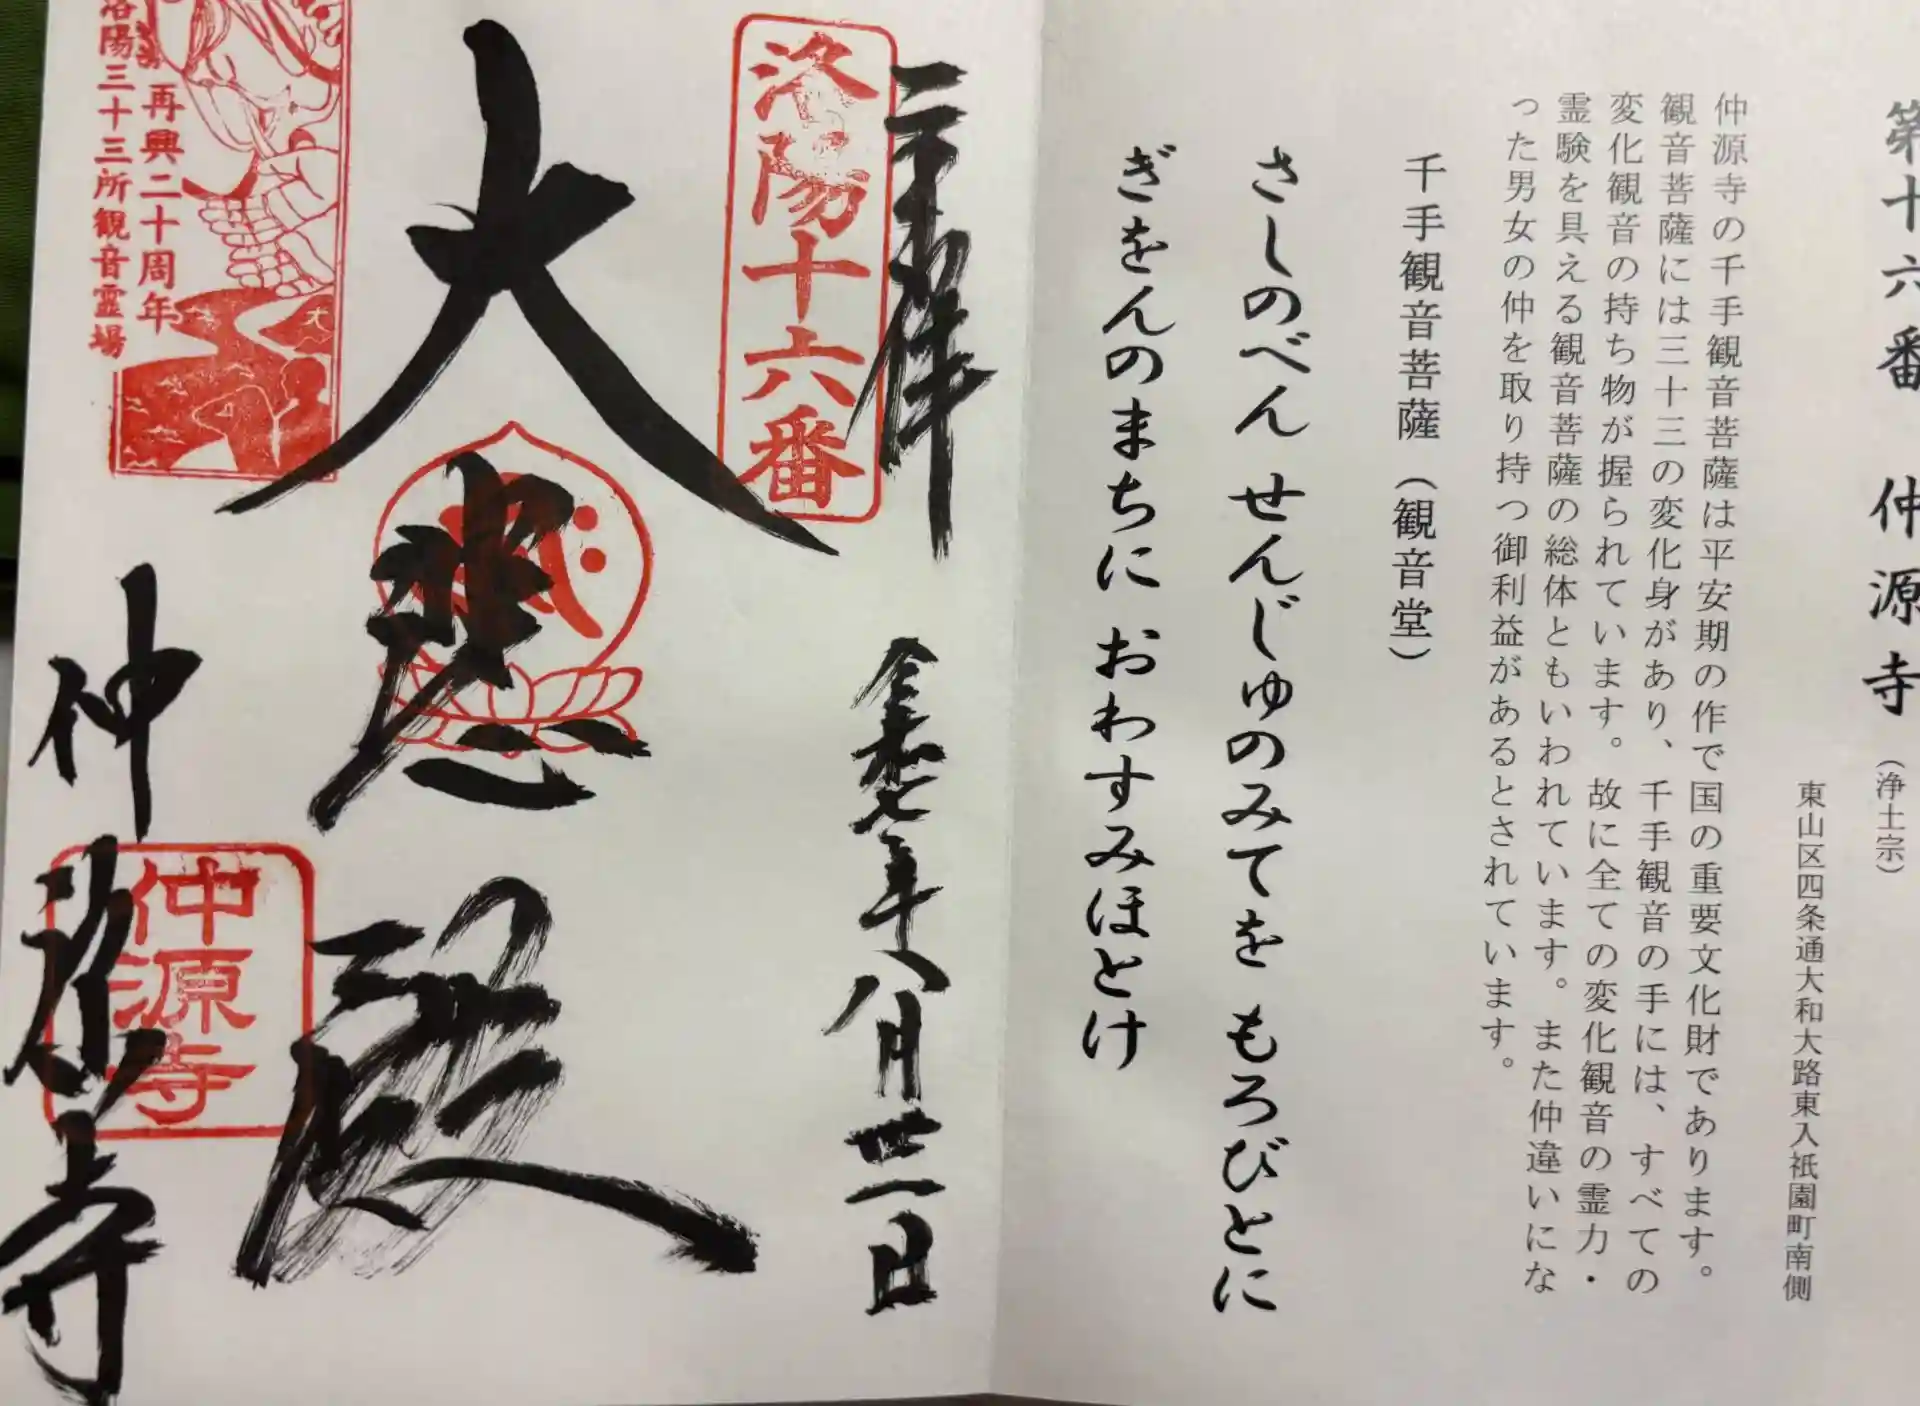 第十六番 仲源寺(浄土宗)
東山区四条通大和大路東入祇園町南側
仲源寺の千手観音菩薩は平安期の作で国の重要文化財であります。
観音菩薩には三十三の変化身があり、千手観音の手には、すべての
変化観音の持ち物が握られています。故に全ての変化観音の霊力・
霊験を具える観音菩薩の総体ともいわれています。また仲違いにな
った男女の仲を取り持つ御利益があるとされています。
千手観音菩薩(観音堂)
さしのべん せんじゅのみてを もろびとに
ぎをんのまちに おわすみほとけ
奉拝
令和七年八月廿一日
洛陽十六番
大悲殿
再興二十周年
洛陽三十三所観音霊場
仲源寺
仲源寺